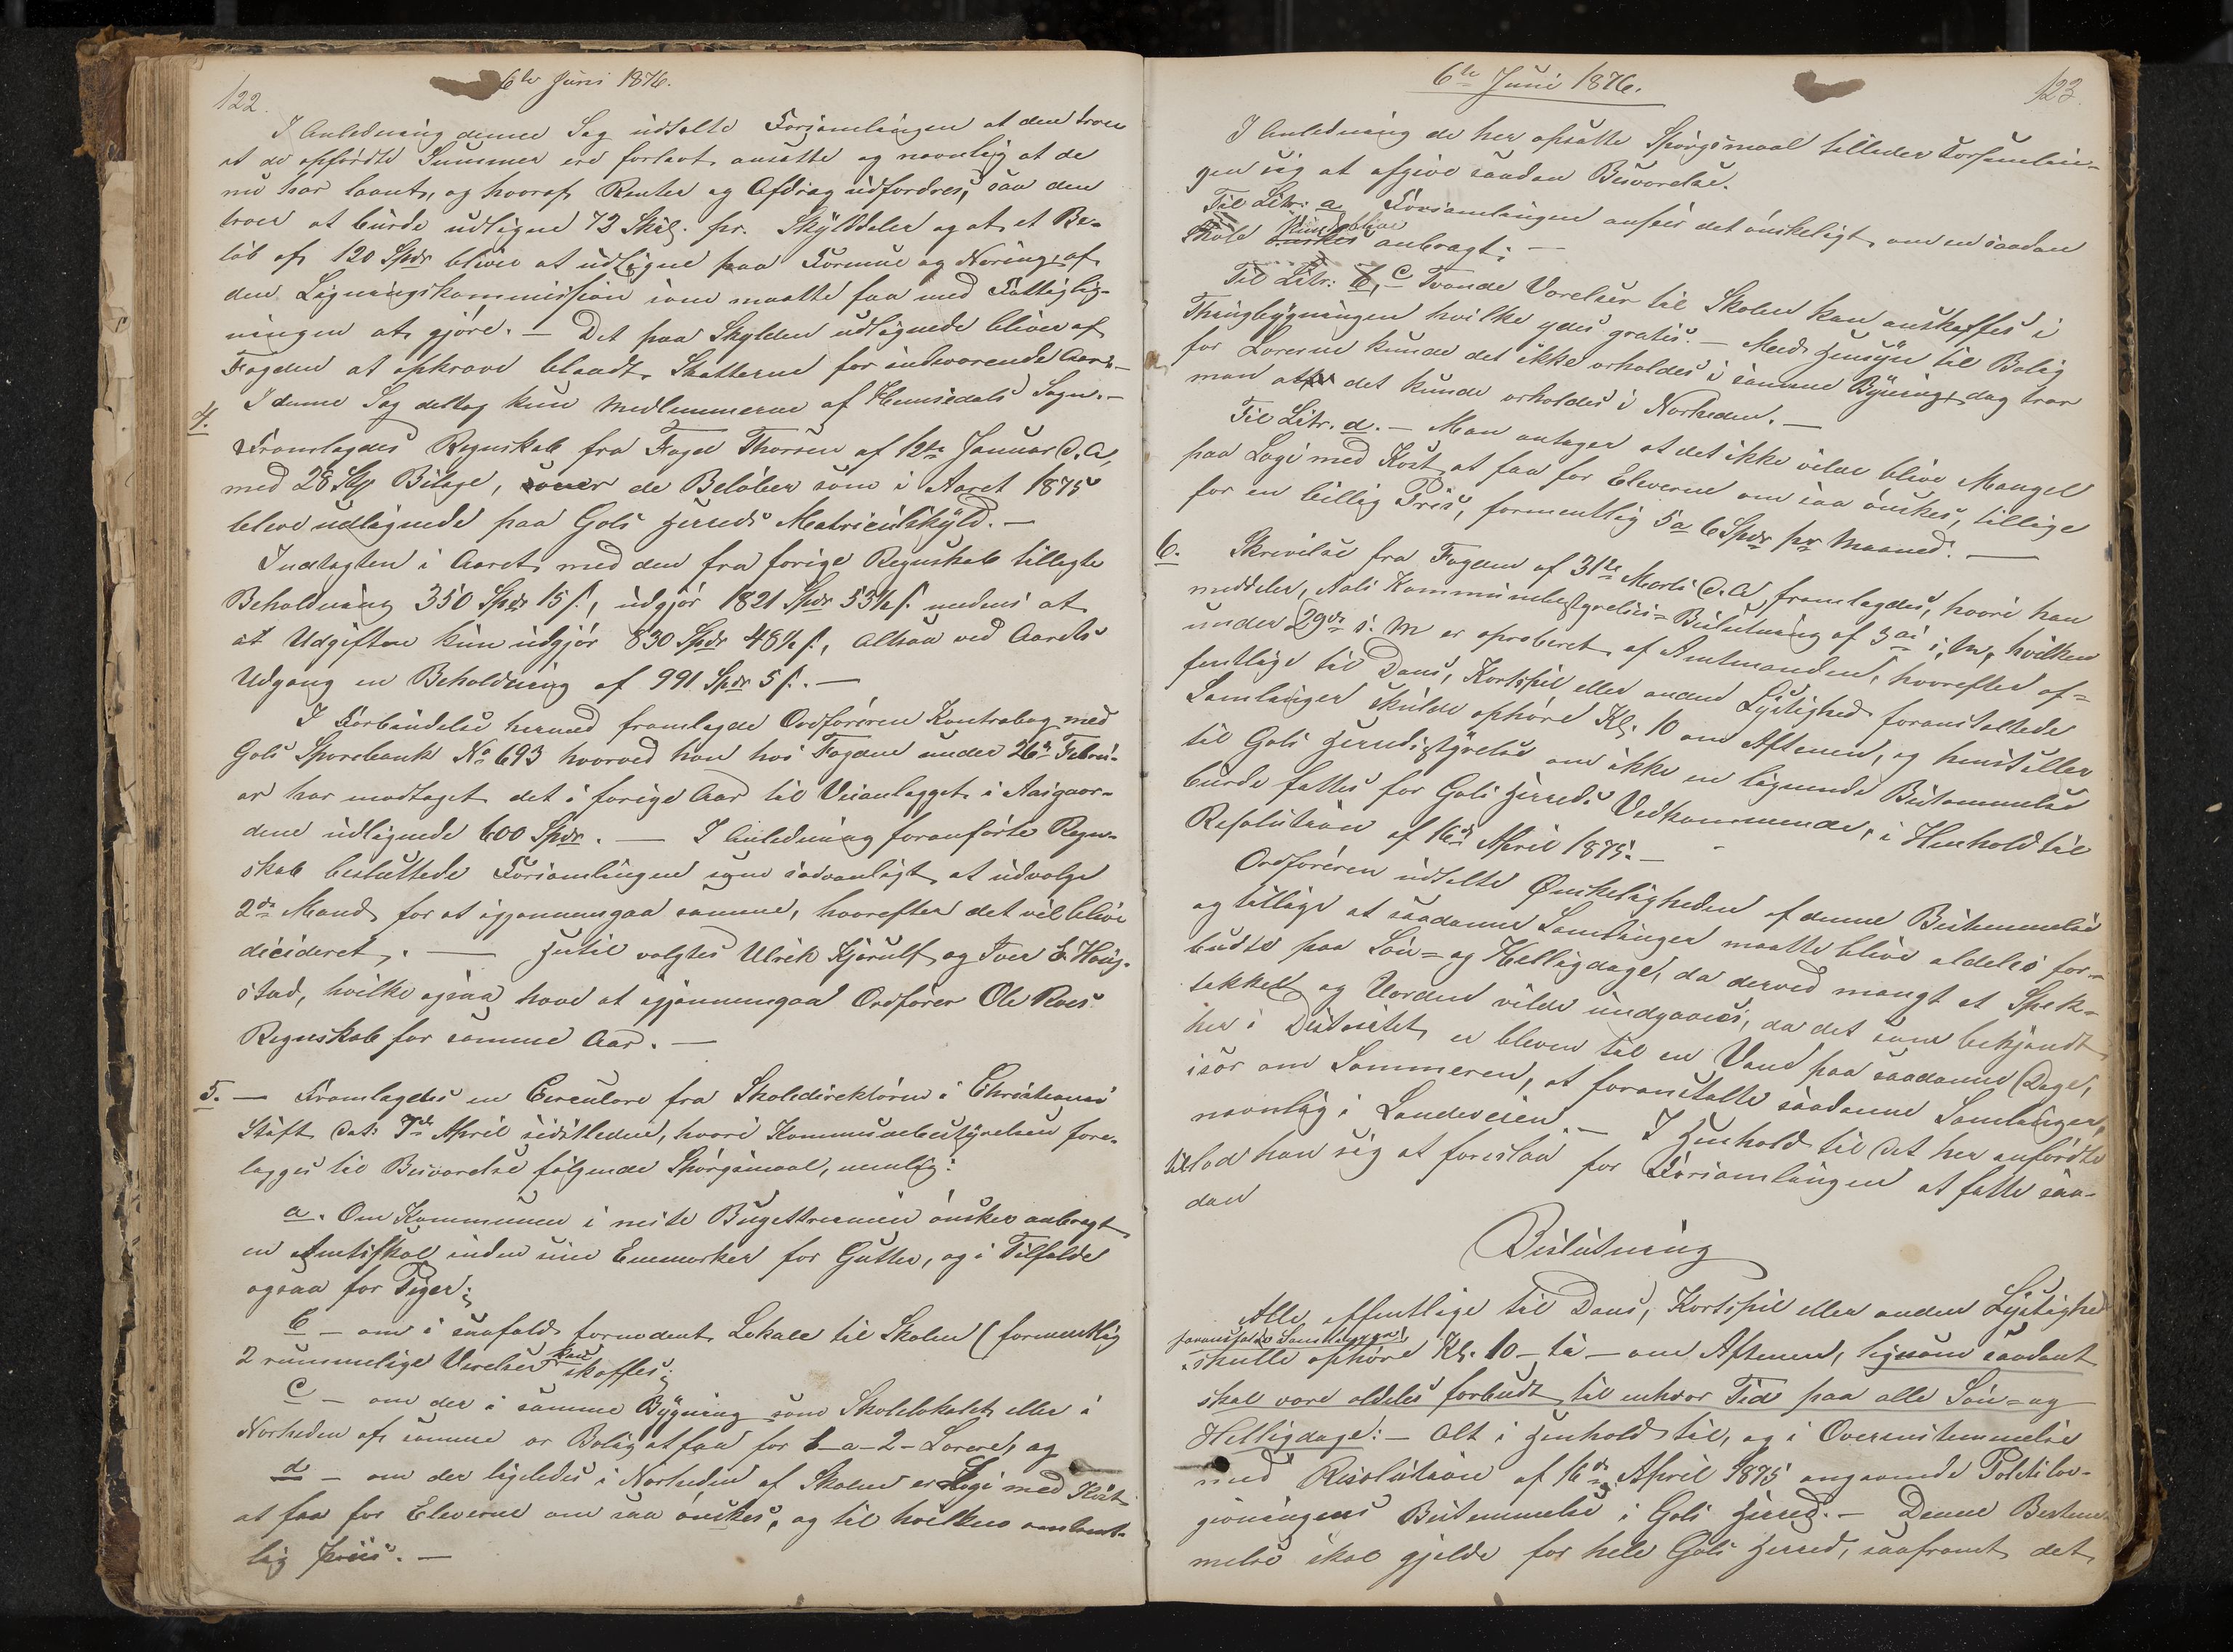 122.
6te Juni 1876.
I Anledning denne Sag udtalte Forsamlingen at den troer
at de opførdte Summer ere forlavt ansatte og navnlig at de
nu har laant, og hvoraf Renter og Afdrag udfordres, saa den
troer at burde udligne 72 Skil. pr. Skylddaler og at et Be-
løb af 120 Spdr bliver at udligne paa Formue og Næring af
den Ligningskommission som maatte faa med Fattiglig-
ningen at gjøre. — Det paa Skylden udlignede bliver af
Fogden at opkræve blandt Skatterne for indeværende Aar. —
I denne Sag deltog kun Medlemmerne af Hemsedals Sogn. —
4.
Fremlagdes Regnskab fra Foged Thorsen af 12te Januar d. A,
med 28 Stk Bilage, over de Beløber som i Aaret 1875
bleve udlignede paa Gols Herreds Matriculskyld. —
Indtægten i Aaret med den fra forrige Regnskab tillagte
Beholdning 350 Spdr 15 s., udgjør 1821 Spdr 53½ s. medens at
at Udgiften kun udgjør 830 Spdr 48½ s., altsaa ved Aarets
Udgang en Beholdning af 991 Spdr 5 s. —
I Forbindelse hermed fremlagde Ordføreren Kontrabog med
Gols Sparebank No 693 hvorved han hos Fogden under 26de Febru-
ar har modtaget det i forrige Aar til Veianlægget i Aasgaar-
dene udlignede 600 Spdr. — I Anledning foranførte Regn-
skab besluttede Forsamlingen som sædvanligt at udvælge
2de Mænd for at igjennemgaa samme, hvorefter det vil blive
dicideret. — Hertil valgtes Ulrik Kjærulf og Iver E. Haug-
stad, hvilke ogsaa have at igjennemgaa Ordfører Ole Roes
Regnskab for samme Aar. —
5. — Fremlagdes en Circulære fra Skoledirektøren i Christiania
Stift dat: 7de April sidstleden, hvori Kommunebestyrelsen fore-
lægges til Besvarelse følgende Spørgsmaal, nemlig:
a. Om Kommunen i neste Bugettermin ønsker anbragt
en Amtsskole inden sine Enemærker for Gutter, og i Tilfælde
ogsaa for Piger;
b — om i saafald fornødent Lokale til Skolen (formentlig
2 rummelige Værelser kan skaffes;
c — om der i samme Bygning som Skolelokalet eller i
Nærheden af samme er Bolig at faa for 1-a-2- Lærere, og
d — om der ligeledes i Nærheden af Skolen er Logi med Kost
at faa for Eleverne om saa ønskes, og til hvilken omtrent-
lig Priis. —
6te Juni 1876.
123.
I Anledning de her opsatte Spørgsmaal tillader Forsamlin-
gen sig at afgive saadan Besvarelse.
Til Litr: a Forsamlingen anseer det ønskeligt om en saadan
Skole kunde blive anbragt; —
Til Litr: b, c Tvende Værelser til Skolen kan anskaffes i
Thingbygningen hvilke ydes gratis. — Med Hensyn til Bolig
for Lærerne kunde det ikke erholdes i samme Bygning, dog tror
man at det kunde erholdes i Nærheden. —
Til Litr. d. — Man antager at det ikke vilde blive Mangel
paa Logi med Kost at faa for Eleverne om saa ønskes, tillige
for en billig Priis, formentlig 5 a 6 Spdr pr Maaned. —
6. Skrivelse fra Fogden af 31te Marts d. A, fremlagdes, hvori han
meddeler, Aals Kommunebestyrelses-Beslutning af 3die s. M, hvilken
under 29de s. M er aproberet af Amtmanden, hvorefter of-
fentlige til Dans, Kortspil eller anden Lystighed foranstaltede
Samlinger skulde ophøre Kl. 10 om Aftenen, og henstiller
til Gols Herredsstyrelse om ikke en lignende Bestemmelse
burde fattes for Gols Herreds Vedkommende, i Henhold til
Resolution af 16de April 1875. —
Ordføreren udtalte Ønskeligheden af denne Bestemmelse
og tillige at saadanne Samlinger maatte blive aldeles for-
budte paa Søn- og Helligdage, da derved mangt et Spek-
takkel og Uorden vilde undgaaes, da det som bekjendt
her i Distriktet er bleven til en Vane paa saadanne Dage,
især om Sommeren, at foranstalte saadanne Samlinger,
navnlig i Landeveien. — I Henhold til det her anførdte
tillod han sig at foreslaa for Forsamlingen at fatte saa-
dan
Beslutning
Alle offentlige til Dans, Kortspil eller anden Lystighed
foranstaltede Samlinger,
skulle ophøre Kl. 10 — ti — om Aftenen, ligesom saadant
skal være aldeles forbudt til enhver Tid paa alle Søn- og
Helligdage: — Alt i Henhold til, og i Overensstemmelse
med Resolution af 16de April 1875 angaaende Politilov-
givningens Bestemmelse i Gols Herred. — Denne Bestem-
melse skal gjelde for hele Gols Herred, saafremt det